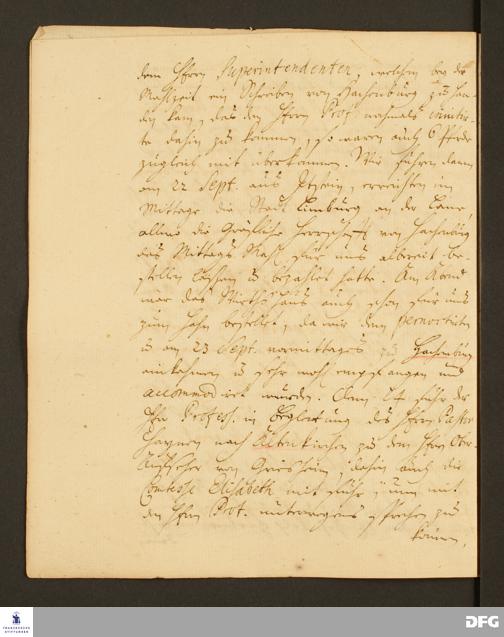 dem Herrn Superintendenten, welchem bey der
Mahlzeit ein Schreiben von Hachenburg zu Han-
den kam, das den Herrn Prof. nochmals invitir-
te dahin zu kommen, so waren auch 6 Pferde
zugleich mit überkommen. Wir fuhren dann
am 22 Sept. aus Itzstein, erreichten im
Mittage die Stadt Limburg an der Lahne
allwo die Gräfliche Herrschafft von Hachenburg
das Mittags Mahl für uns albereit be-
stellen laßen u bezahlet hatte. Am Abend
war das Wirths Haus auch schon für uns
zum Hahn bestellet, da wir denn pernoctirten
u am 23 Sept. vormittages zu Hachenburg
einkahmen u sehr wohl empfangen und
accommodiret wurden. Dem 24 fuhr der
Herr Profess. in Begleitung des Herrn Pastor
nach Altenkirchen zu dem Herrn Ober-
von Griesheim, dahin auch die
Comtesse Elisabeth mit fuhr, um mit
den Herrn Prof. unterwegens sprechen zu
können,
FRANCKESCHE
STIFTUNGEN
DFG